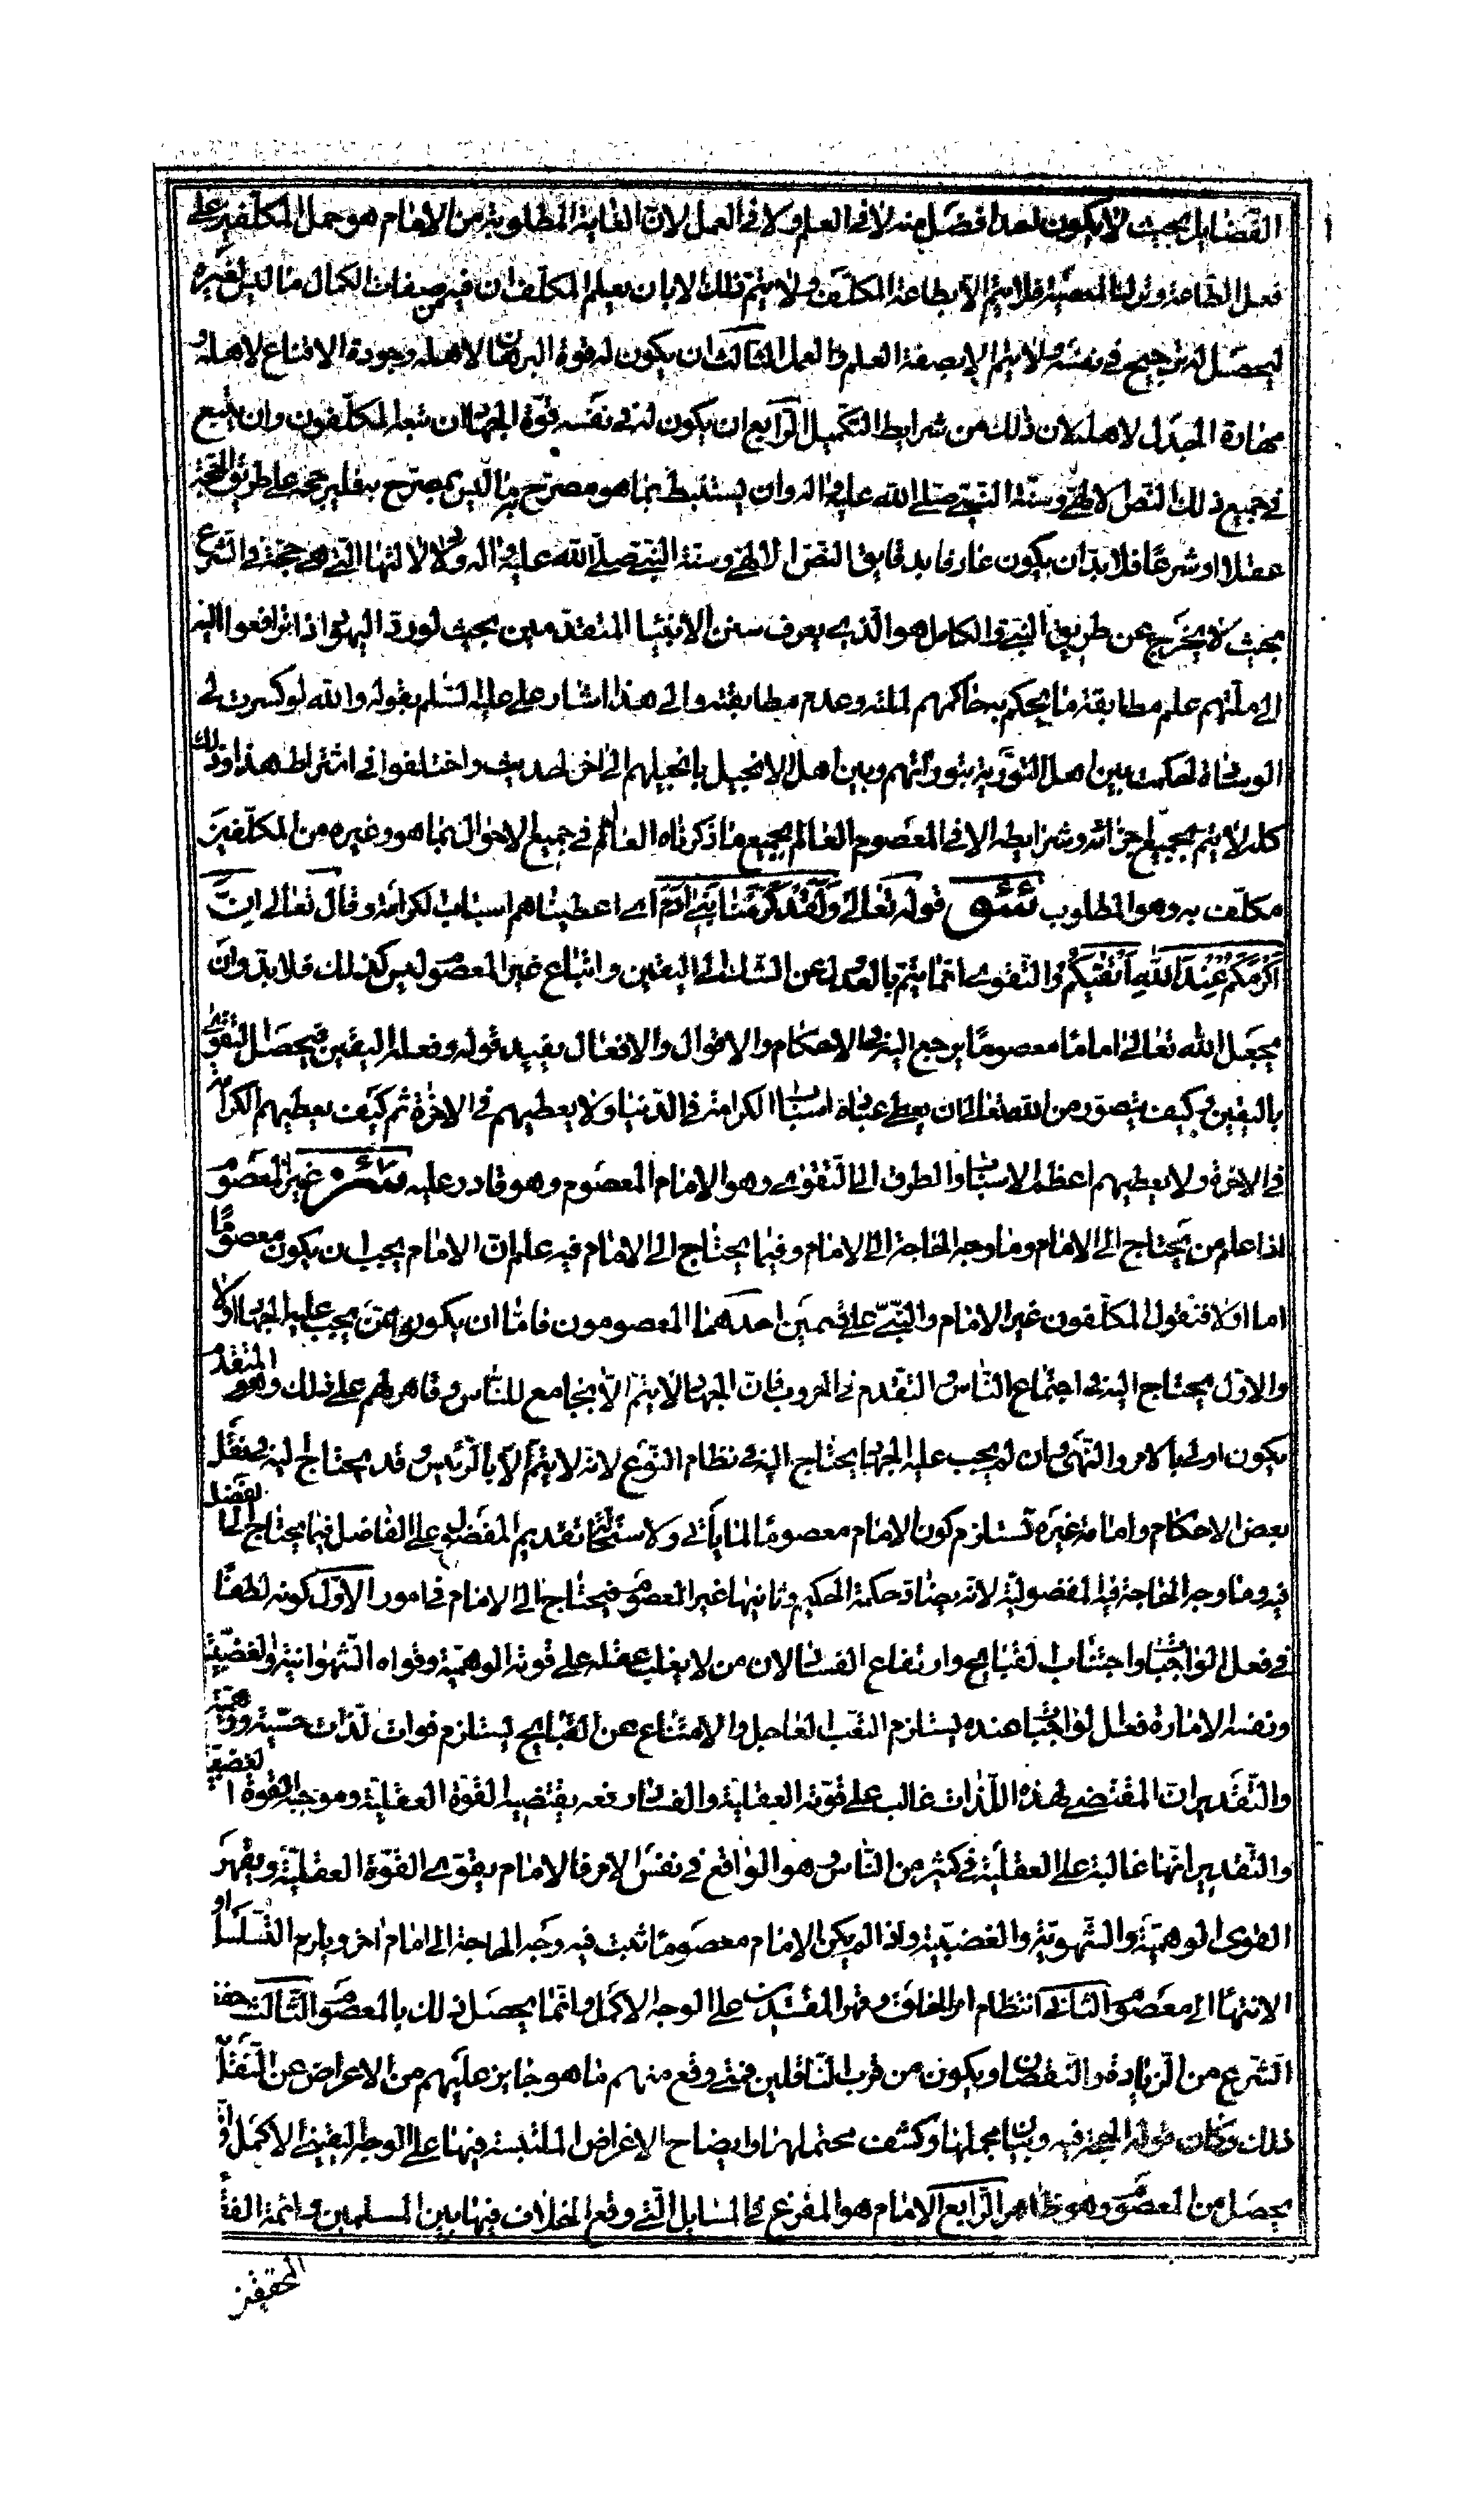 الفضايل بحيث لا يكون احد افضل منه لا فى العلم ولا فى العمل لان الغاية المطلوبة من الامام هو حمل المكلفين على
فعل الطاعة وترك المعصية فلا يتم الا بطاعة المكلف ولا يتم ذلك الا بان يعلم المكلف ان فيه من صفات الكمال ما ليس لغيره
ليحصل له ترجيح فى نفسه ولا يتم الا بصفة العلم والعمل الثالث ان يكون له قوة البرهان لاهله وجودة الاقناع لاهله و
مهارة الجدل لاهله لان ذلك من شرايط التكميل الرابع ان يكون له فى نفسه قوة الجهاد ان تبعه المكلفون وان يتبع
فى جميع ذلك النص الالهى وسنة النبى صلى الله عليه واله وان يستنبط بما هو مصرح به ما ليس بمصرح به على طريق الحجة
عقلا او شرعا فلا بد ان يكون عارفا بدقايق النص الالهى وسنة النبى صلى الله عليه واله ودلالاتها التى هى حجة فى الشرع
بحيث لا يخرج عن طريق النبى والكامل هو الذى يعرف سنن الانبيا المتقدمين بحيث لو رد اليهود اذا ترافعوا اليه
الى ملتهم علم مطابقة ما يحكم به حاكمهم لملته وعدم مطابقته والى هذا اشار على عليه السلم بقوله والله لو كسرت لى
الوسادة لحكمت بين اهل التورية بتوراتهم وبين اهل الانجيل بانجيلهم الى اخر الحديث واختلفوا فى اشتراط هذا وذلك
كله لا يتم بجميع اجزائه وشرايطه الا فى المعصوم العالم بجميع ما ذكرناه العالم فى جميع الاحوال بما هو وغيره من المكلفين
مكلف به وهو المطلوب قوله تعالى ولقد كرمنا بنى ادم اى اعطيناهم اسباب الكرامة وقال تعالى ان
اكرمكم عند الله اتقيكم والتقوى انما يتم بالعدول عن الشك الى اليقين واتباع غير المعصوم ليس كذلك فلا بد وان
يجعل الله تعالى اماما معصوما يرجع اليه فى الاحكام والاقوال والافعال يفيد قوله وفعله اليقين فيحصل التقوى
باليقين وكيف يتصور من الله تعالى ان يعطى عباده اسباب الكرامة فى الدنيا ولا يعطيهم فى الاخرة ثم كيف يعطيهم الكرامة
فى الاخرة ولا يعطيهم اعظم الاسباب والطرق الى التقوى وهو الامام المعصوم وهو قادر عليه غير المعصوم
اذا علم من يحتاج الى الامام وما وجه الحاجة الى الامام وفيما يحتاج الى الامام فيه علم ان الامام يجب ان يكون معصوما
اما اولا فنقول المكلفون غير الامام والنبى على قسمين احدهما المعصومون فاما ان يكون ممن يجب عليه الجهاد او لا
والاول يحتاج اليه فى اجتماع الناس والتقدم فى الحروب فان الجهاد لا يتم الا بجامع للناس وقاهر لهم على ذلك وهو المتقدم
يكون اولى بالامر والنهى وان لم يجب عليه الجهاد يحتاج اليه فى نظام النوع لانه لا يتم الا بالرئيس وقد يحتاج اليه فى نقل
بعض الاحكام وامامة غيره تستلزم كون الامام معصوما لما ياتى ولاستحالة تقديم المفضول على الفاضل فيما يحتاج الى الفضل
فيه وما وجه الحاجة فيه المفضولية لانه يضاد حكمة الحكيم وثانيها غير المعصوم فيحتاج الى الامام فى امور الاول كونه لطفا
فى فعل الواجبات واجتناب القبايح وارتفاع الفساد لان من لا يغلب عقله على قوته الوهمية وقواه الشهوانية والغضبية
ونفسه الامارة فعل الواجبات عنده يستلزم التعب العاجل والامتناع عن القبايح يستلزم فوات لذات حسية ووهمية
والتقدير ان المقتضى لهذه اللذات غالب على قوته العقلية والفساد رفعه يقتضيه القوة العقلية وموجبه القوة الغضبية
والتقدير انها غالبة على العقلية فى كثير من الناس وهو الواقع فى نفس الامر فالامام يقوى القوة العقلية ويقهر
القوى الوهمية والشهوية والغضبية واذا لم يكن الامام معصوما ثبت فيه وجه الحاجة الى امام اخر ويلزم التسلسل او
الانتها الى معصوم الثانى انتظام امر الخلق وقهر المفسدين على الوجه الاكمل وانما يحصل ذلك بالمعصوم الثالث حفظ
الشرع من الزيادة والنقصان ويكون من قرب الناقلين فمتى وقع منهم ما هو جايز عليهم من الاعراض عن النقل
ذلك وكان قوله الحجة فيه وبيان مجملها وكشف محتملها وايضاح الاغراض الملتبسة فيها على الوجه اليقينى الاكمل وانما
يحصل من المعصوم وهو ظاهر الرابع الامام هو المفزع فى المسايل التى وقع الخلاف فيها بين المسلمين وائمة الفقه
المحققين